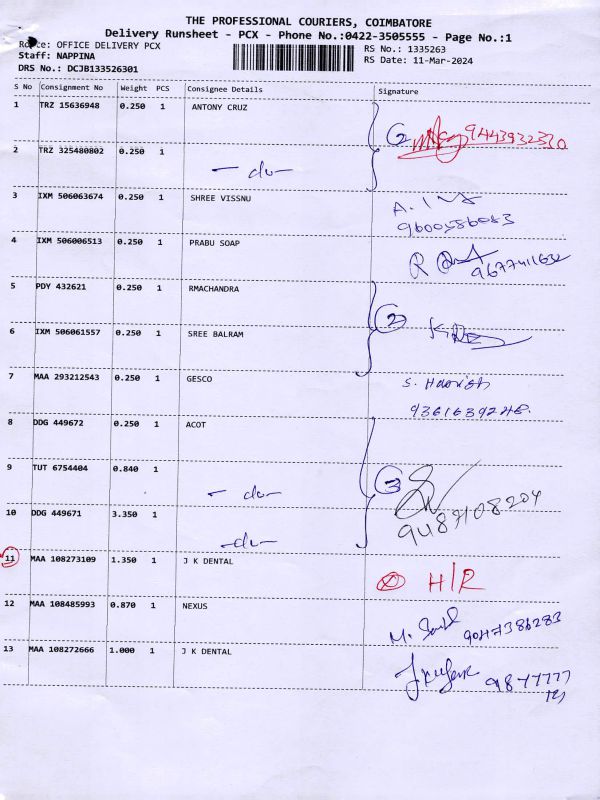 THE PROFESSIONAL COURIERS, COIMBATORE
Delivery Runsheet - PCX - Phone No.:0422-3505555 - Page No.:1
Route: OFFICE DELIVERY PCX
RS No.: 1335263
Staff: NAPPINA
RS Date: 11-Mar-2024
DRS No.: DCJB133526301
S No Consignment No Weight PCS Consignee Details Signature
1 TRZ 15636948 0.250 1 ANTONY CRUZ
2 9443932330
2 TRZ 325480802 0.250 1
- do -
3 IXM 506063674 0.250 1 SHREE VISSNU
9600586083
4 IXM 506006513 0.250 1 PRABU SOAP
9677411632
5 PDY 432621 0.250 1 RMACHANDRA
2
6 IXM 506061557 0.250 1 SREE BALRAM
7 MAA 293212543 0.250 1 GESCO
S. Harish
9361639248.
8 DDG 449672 0.250 1 ACOT
9 TUT 6754404 0.840 1
- do -
3
10 DDG 449671 3.350 1
9487108204
- do -
11 MAA 108273109 1.350 1 J K DENTAL
H/R
12 MAA 108485993 0.870 1 NEXUS
9047386283
13 MAA 108272666 1.000 1 J K DENTAL